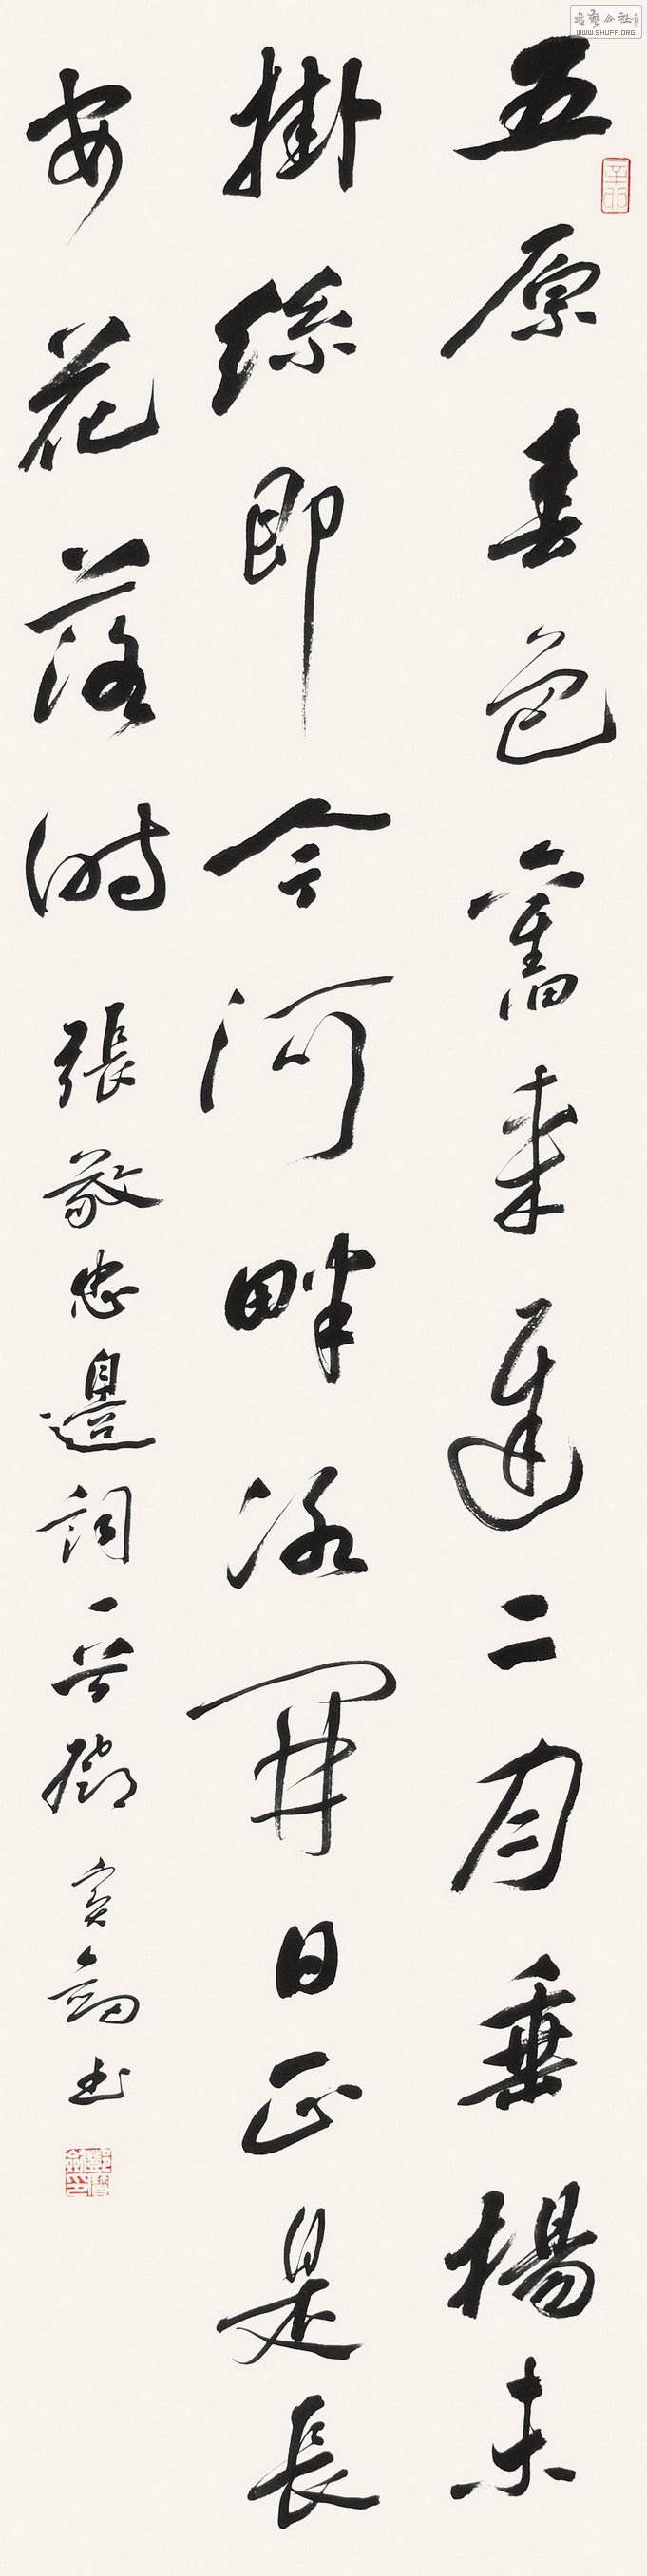 五原春色舊來遲二月垂楊未
掛絲即今河畔冰開日正是長
安花落時 張敬忠邊詞一首 鄧寶劍書
WWW.SHUFA.ORG